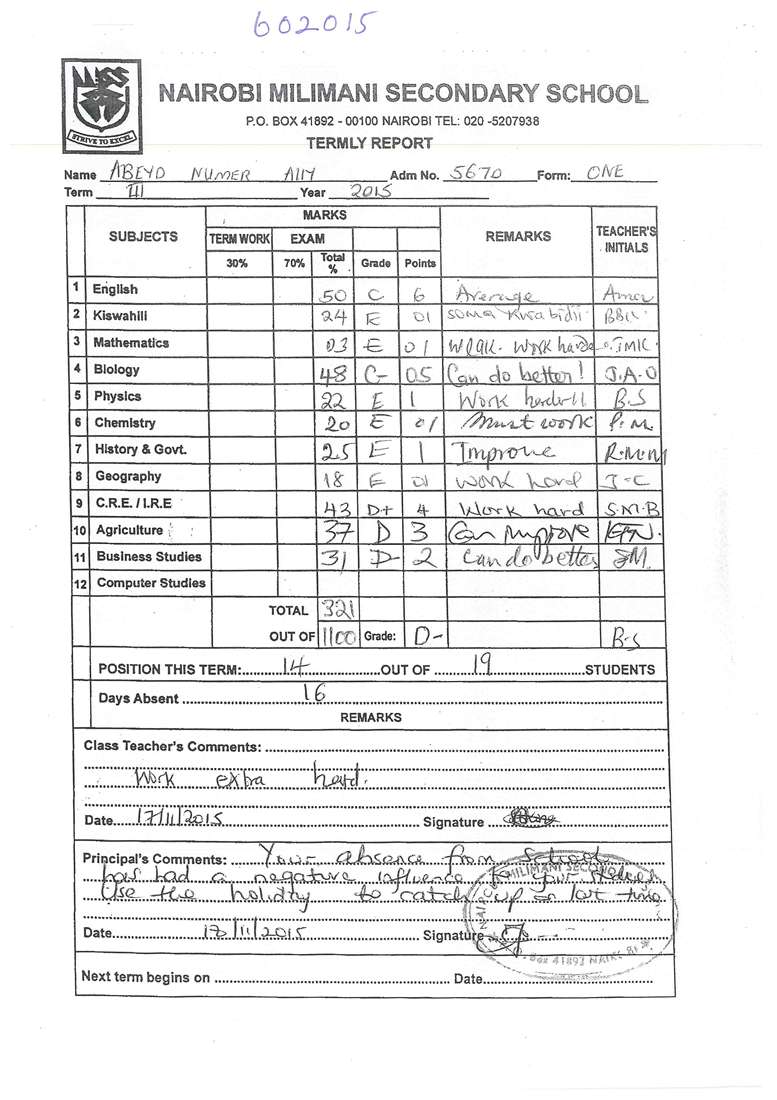 602015
STRIVE TO EXCEL
NAIROBI MILIMANI SECONDARY SCHOOL
P.O. BOX 41892 - 00100 NAIROBI TEL: 020 -5207938
TERMLY REPORT
Name ABEYD NUMER Ally Adm No. 5670 Form: ONE
Term III Year 2015
SUBJECTS MARKS REMARKS TEACHER'S INITIALS
TERM WORK EXAM
30% 70% Total % Grade Points
1 English 50 C 6 Average
2 Kiswahili 24 E 01 soma kwa bidii
3 Mathematics 03 E 01 Weak. Work hard
4 Biology 48 C- 05 Can do better! J.A.O
5 Physics 22 E 1 Work harder!! B.S
6 Chemistry 20 E 01 Must work P.M.
7 History & Govt. 25 E 1 Improve R.M.M
8 Geography 18 E 01 work hard J-C
9 C.R.E. / I.R.E 43 D+ 4 Work hard S.M.B
10 Agriculture 37 D 3 Can improve
11 Business Studies 31 D- 2 Can do better SM.
12 Computer Studies
TOTAL 321
OUT OF 1100 Grade: D- B-S
POSITION THIS TERM: 14 OUT OF 19 STUDENTS
Days Absent 16
REMARKS
Class Teacher's Comments:
Work extra hard.
Date 17/11/2015 Signature
Principal's Comments: Your absence from school
has had a negative influence
Use the holiday to catch up on lost time
Date 18/11/2015 Signature
MILIMANI
Box 41892 NAIROBI
Next term begins on Date